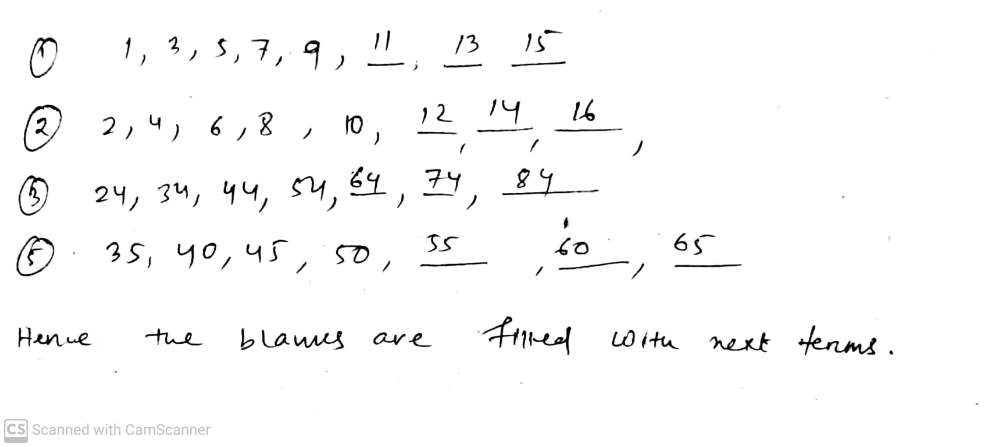 ① 1, 3, 5, 7, 9, 11, 13 15
② 2, 4, 6, 8, 10, 12, 14, 16,
③ 24, 34, 44, 54, 64, 74, 84
⑤ 35, 40, 45, 50, 55, 60, 65
Hence the blanks are filled with next terms.
CS Scanned with CamScanner